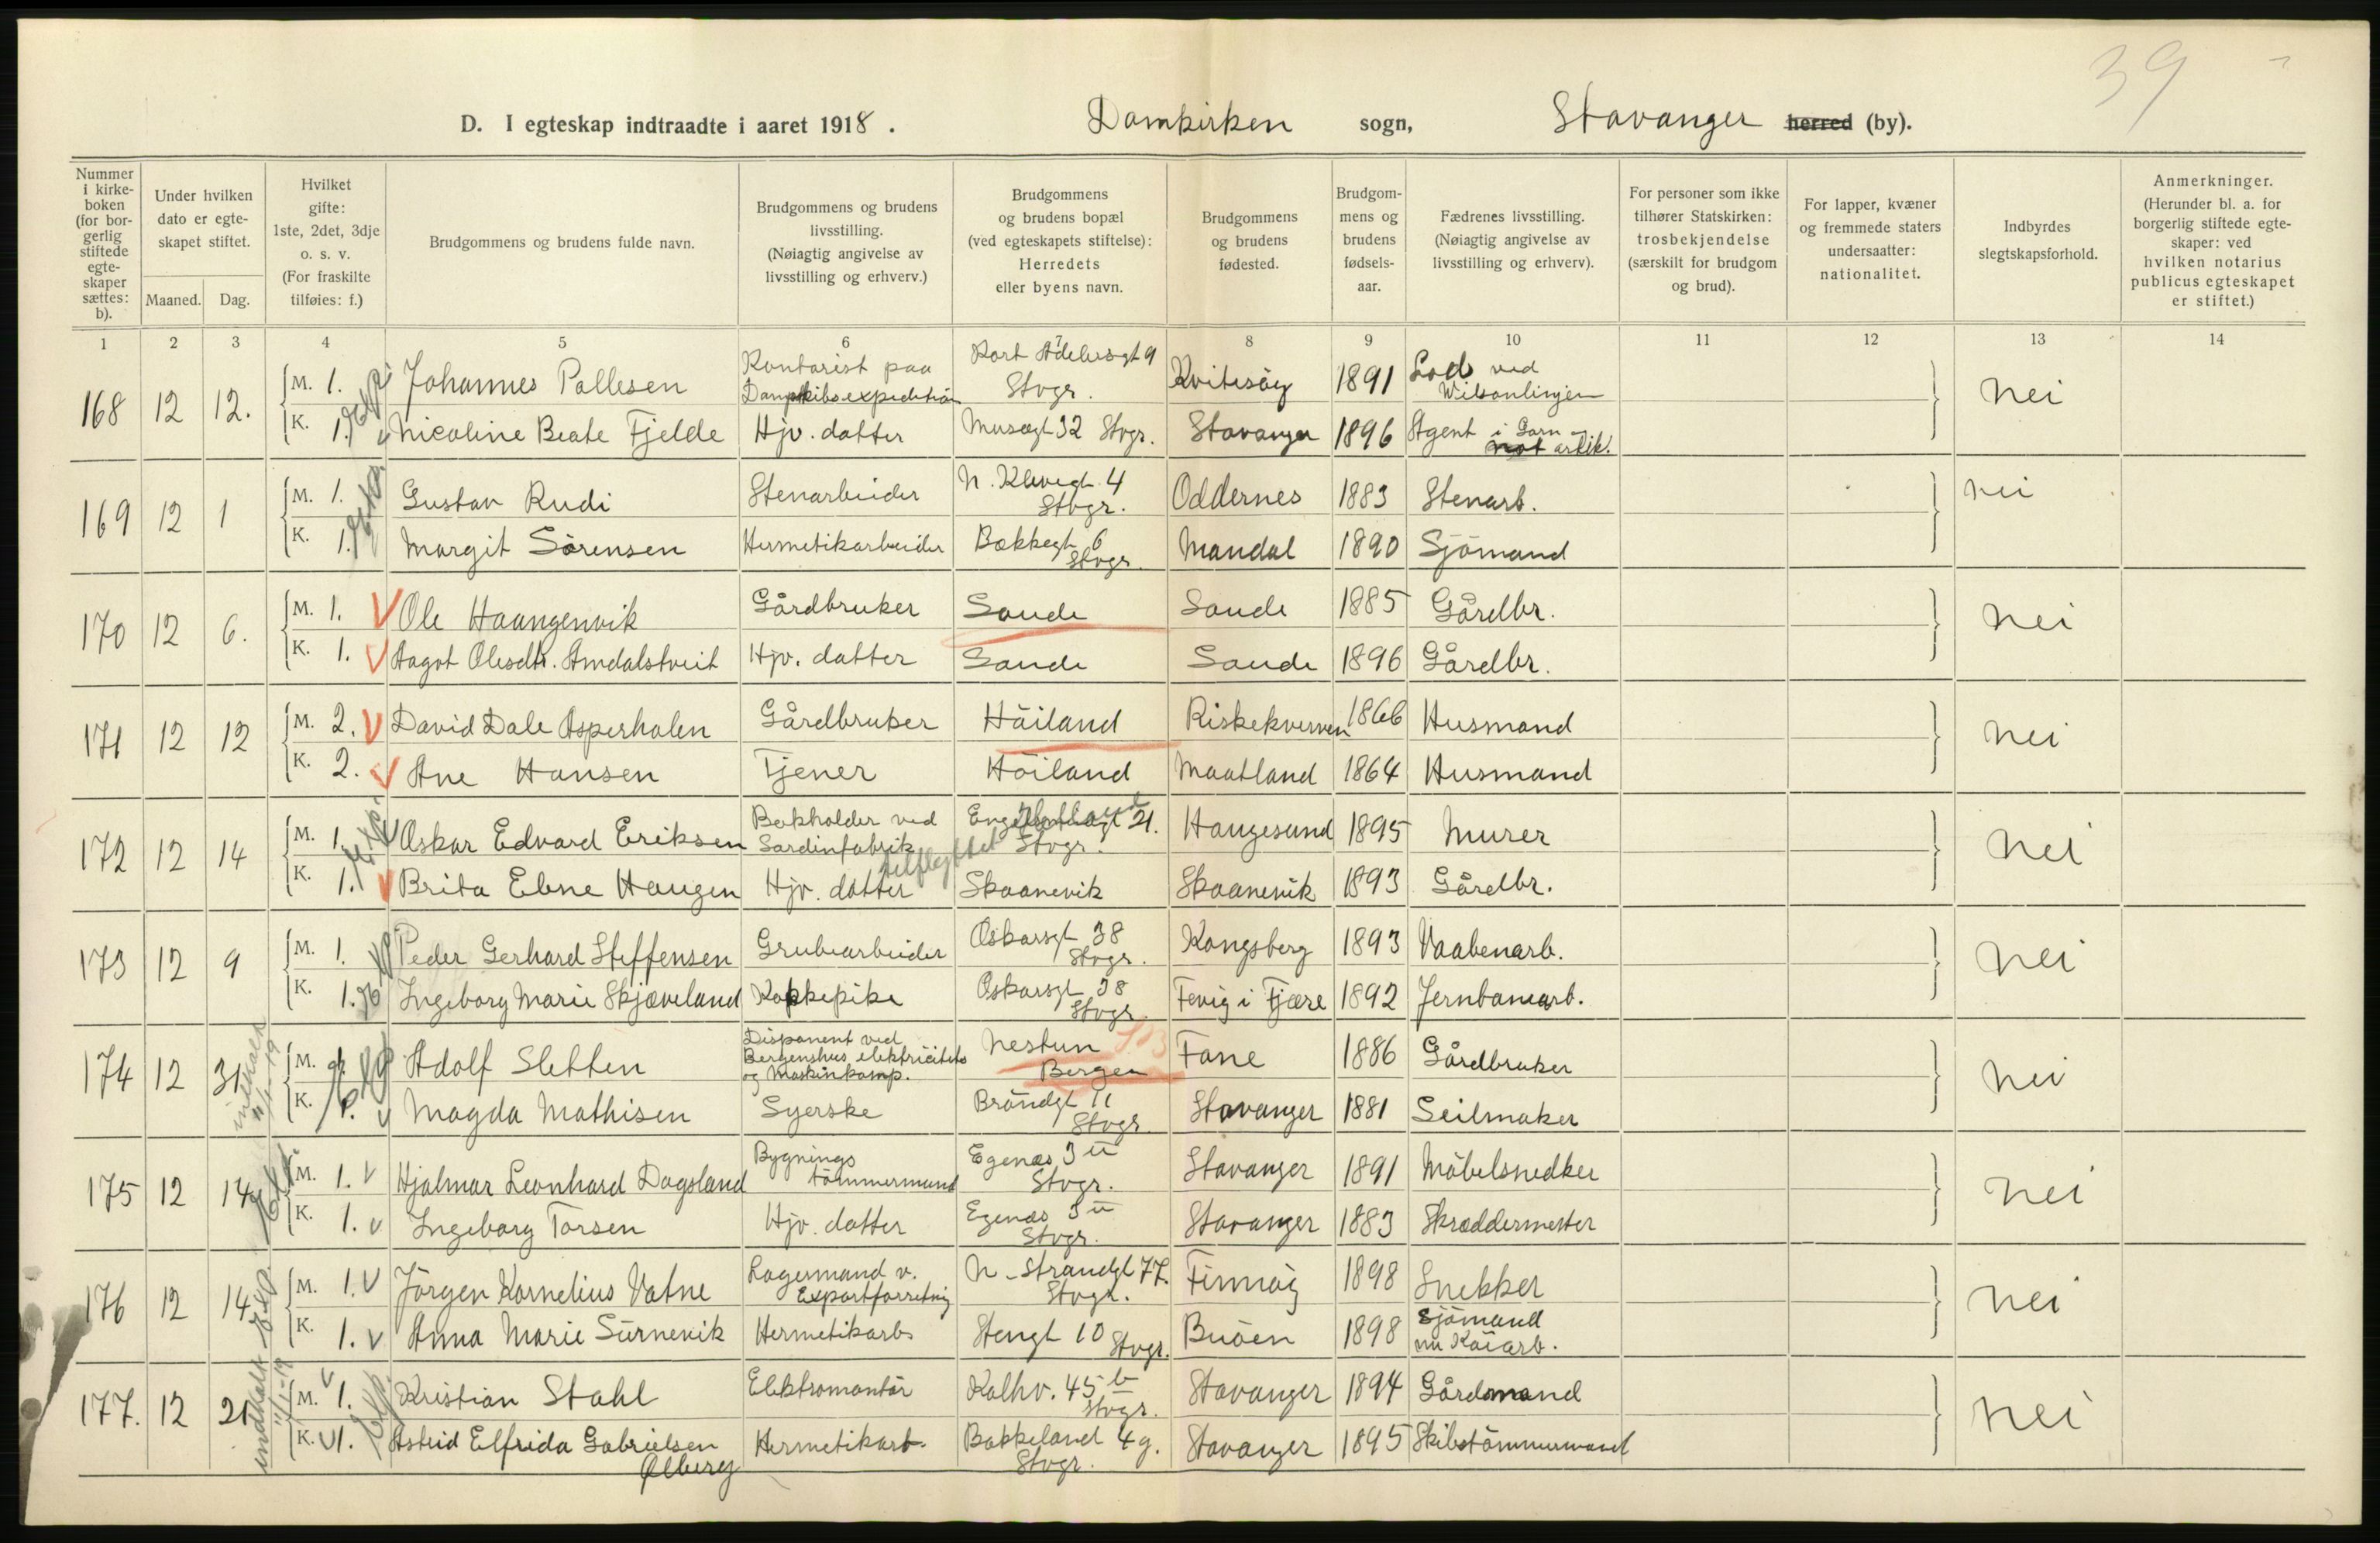 39
D. I egteskap indtraadte i aaret 1918. Domkirken sogn, Stavanger herred (by).
Nummer i kirkeboken (for borgerlig stiftede egteskaper sættes: b).
Under hvilken dato er egteskapet stiftet.
Maaned. Dag.
Hvilket gifte: 1ste, 2det, 3dje o. s. v. (For fraskilte tilføies: f.)
Brudgommens og brudens fulde navn.
Brudgommens og brudens livsstilling. (Nøiagtig angivelse av livsstilling og erhverv.)
Brudgommens og brudens bopæl (ved egteskapets stiftelse): Herredets eller byens navn.
Brudgommens og brudens fødested.
Brudgommens og brudens fødselsaar.
Fædrenes livsstilling. (Nøiagtig angivelse av livsstilling og erhverv).
For personer som ikke tilhører Statskirken: trosbekjendelse (særskilt for brudgom og brud).
For lapper, kvæner og fremmede staters undersaatter: nationalitet.
Indbyrdes slegtskapsforhold.
Anmerkninger. (Herunder bl. a. for borgerlig stiftede egteskaper: ved hvilken notarius publicus egteskapet er stiftet.)
1 2 3 4 5 6 7 8 9 10 11 12 13 14
168 12 12. M. 1. Johannes Pallesen Kontorist paa Dampskibsexpedition Kort Adelersgt 9 Stvgr. Kvitsöy 1891 Lods ved Wilsonlinjen nei
K. 1. Nicoline Beate Fjelde Hjv. datter Musegt 32 Stvgr. Stavanger 1896 Agent i Garn - not artik.
169 12 1 M. 1. Gustav Rudi Stenarbeider N. Klevegt. 4 Stvgr. Oddernes 1883 Stenarb. nei
K. 1. Margit Sörensen Hermetikarbeider Bakkegt 6 Stvgr. Mandal 1890 Sjömand
170 12 6. M. 1. V Ole Haangenvik Gårdbruker Saude Saude 1885 Gårdbr. nei
K. 1. V Aagot Olesdtr. Amdalstveit Hjv. datter Saude Saude 1896 Gårdbr.
171 12 12 M. 2. V David Dale Asperholen Gårdbruker Höiland Riskekvernen 1866 Husmand nei
K. 2. V Ane Hansen Tjener Höiland Maatland 1864 Husmand
172 12 14 M. 1. V Oskar Edvard Eriksen Bokholder ved Sardinfabrik 21. Stvgr. Haugesund 1895 Murer nei
K. 1. V Brita Elene Haugen Hjv. datter tilflyttet Skaanevik Skaanevik 1893 Gårdbr.
173 12 9 M. 1. Peder Gerhard Steffensen Grubearbeider Oskarsgt 38 Stvgr. Kongsberg 1893 Vaabenarb. nei
K. 1. Ingeborg Marie Skjæveland Kokkepike Oskarsgt 38 Stvgr Fevig i Fjære 1892 Jernbanearb.
174 12 31 indkalt 11/1-19 M. Adolf Sletten Disponent ved Bergenshus elektricitets og Maskinkomp. Nestun Bergen Fane 1886 Gårdbruker nei
K. 1. V Magda Mathisen Syerske Bröndgt 11 Stvgr. Stavanger 1881 Seilmaker
175 12 14 M. 1. V Hjalmar Leonhard Dagsland Bygnings tömmermand Egenæs 3 Stvgr. Stavanger 1891 Möbelsnedker nei
K. 1. V Ingeborg Torsen Hjv. datter Egenæs 3 Stvgr. Stavanger 1883 Skræddermester
176 12 14 M. 1. V Jörgen Kornelius Vatne Lagermand v. Exportforretnig N. Strandgt 77. Stvgr. Finnöy 1898 Snekker nei
K. 1. V Anna Marie Sörnevik Hermetikarb Stengt 10 Stvgr. Buöen 1898 Sjömand nu Kaiarb.
177. 12 21 indkalt 11/1-19 M. 1. Kristian Stahl Elektromontör Kalhv. 45 b Stvgr. Stavanger 1894 Gårdmand nei
K. V 1. Astrid Elfrida Gabrielsen Ølberg Hermetikarb. Bakkeland 4 g. Stvgr. Stavanger 1895 Skibstömmermand